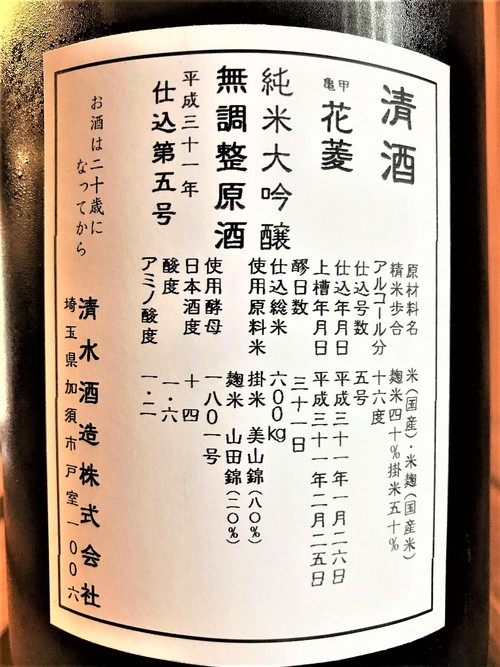 清酒
亀甲
花菱
純米大吟醸
無調整原酒
平成三十一年
仕込第五号
お酒は二十歳に
なってから
原材料名 米(国産)・米麹(国産米)
精米歩合 麹米四十%掛米五十%
アルコール分 十六度
仕込号数 五号
仕込年月日 平成三十一年一月二六日
上槽年月日 平成三十一年二月二五日
醪日数 三十一日
仕込総米 六00kg
使用原料米 掛米 美山錦(八〇%)
麹米 山田錦(二〇%)
使用酵母 一八0一号
日本酒度 十四
酸度 一・六
アミノ酸度 一・二
清水酒造株式会社
埼玉県加須市戸室一00六